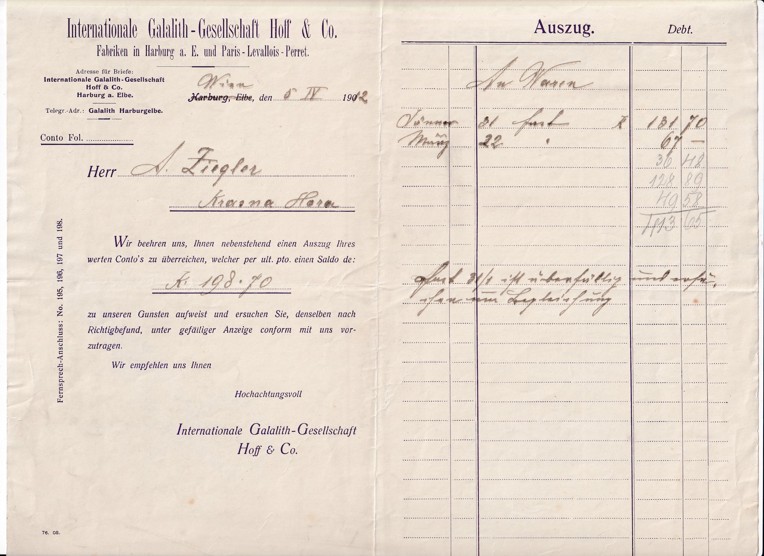 Internationale Galalith-Gesellschaft Hoff & Co.
Fabriken in Harburg a. E. und Paris-Levallois-Perret.
Adresse für Briefe:
Internationale Galalith-Gesellschaft
Hoff & Co.
Harburg a. Elbe.
Telegr.-Adr.: Galalith Harburgelbe.
Wien
Harburg, Elbe, den 5 IV 1912
Conto Fol.
Herr A. Ziegler
Krasna Hora
Wir beehren uns, Ihnen nebenstehend einen Auszug Ihres
werten Conto's zu überreichen, welcher per ult. pto. einen Saldo de:
K. 198.70
zu unseren Gunsten aufweist und ersuchen Sie, denselben nach
Richtigbefund, unter gefälliger Anzeige conform mit uns vor-
zutragen.
Wir empfehlen uns Ihnen
Hochachtungsvoll
Internationale Galalith-Gesellschaft
Hoff & Co.
Fernsprech-Anschluss: No. 195, 196, 197 und 198.
76. 08.
Auszug. Debt.
An Waren
Jänner 31 fact K 131 70
März 22 " 67 —
30 48
128 89
49 58
fact 31/1 ist überfällig und ersu-
chen um Begleichung